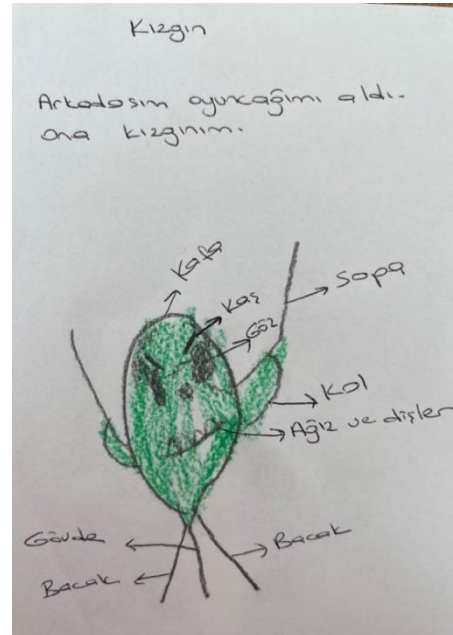 Kızgın
Arkadaşım oyuncağımı aldı.
Ona kızgınım.
Kafa
Kaş
Göz
Sopa
Kol
Ağız ve dişler
Gövde
Bacak
Bacak